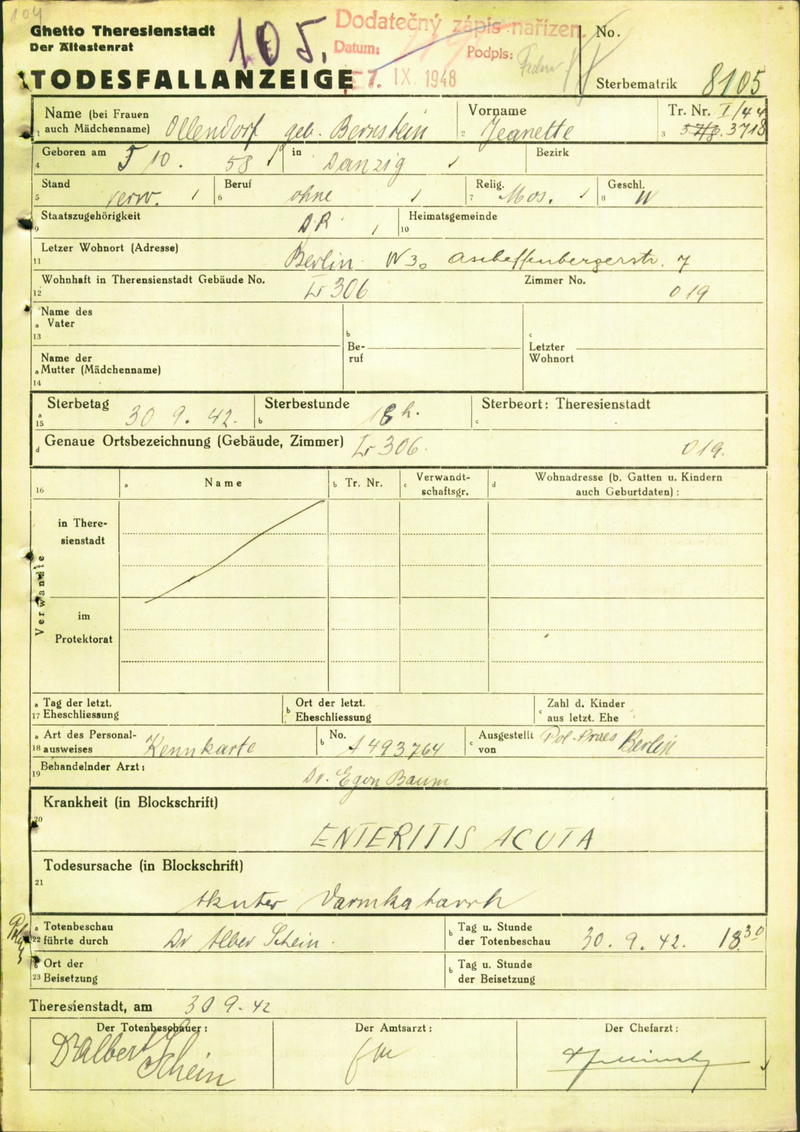 104
Ghetto Theresienstadt
Der Ältestenrat
105.
Dodatečný zápis nařízen
Datum:
Podpis:
7. IX. 1948
No.
TODESFALLANZEIGE
Sterbematrik 8105
Name (bei Frauen auch Mädchenname) Ollendorf geb. Bernstein
1
Vorname Jeanette
2
Tr. Nr. I/44
3 3718
Geboren am 5 10. 58 in Danzig Bezirk
4
Stand verw. Beruf ohne Relig. Mos. Geschl. W
5 6 7 8
Staatszugehörigkeit DR Heimatsgemeinde
9 10
Letzer Wohnort (Adresse) Berlin W 30 Aschaffenbergerstr. 7
11
Wohnhaft in Theresienstadt Gebäude No. Lr 306 Zimmer No. 019
12
Name des
a Vater
13
b Beruf
c Letzter Wohnort
Name der
a Mutter (Mädchenname)
14
a Sterbetag 30 9. 42. b Sterbestunde 18 h. c Sterbeort: Theresienstadt
15
d Genaue Ortsbezeichnung (Gebäude, Zimmer) Lr 306. 019.
16 a Name b Tr. Nr. c Verwandtschaftsgr. d Wohnadresse (b. Gatten u. Kindern auch Geburtdaten):
Verwandte
in Theresienstadt
im Protektorat
a Tag der letzt. b Ort der letzt. c Zahl d. Kinder
17 Eheschliessung Eheschliessung aus letzt. Ehe
a Art des Personal- b No. c Ausgestellt
18 ausweises Kennkarte A493764 von Pol-Praes Berlin
19 Behandelnder Arzt: Dr. Egon Baum
Krankheit (in Blockschrift)
20
ENTERITIS ACUTA
Todesursache (in Blockschrift)
21
Akuter Darmkatarrh
a Totenbeschau b Tag u. Stunde
22 führte durch Dr Alber Schein. der Totenbeschau 30. 9. 42. 18 30
a Ort der b Tag u. Stunde
23 Beisetzung der Beisetzung
Theresienstadt, am 30 9. 42
Der Totenbeschauer: Der Amtsarzt: Der Chefarzt:
Dr Albert Schein